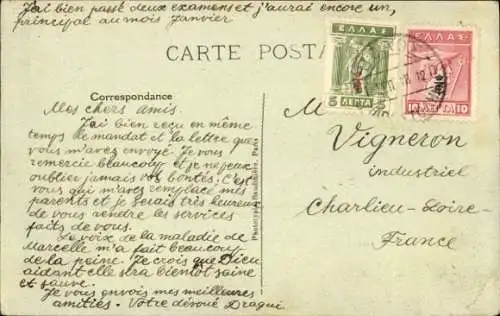 J'ai bien passé deux examens et j'aurai encore un,
principal au mois Janvier
CARTE POSTA
Correspondance
Mes chers amis.
J'ai bien reçu en même
temps le mandat et la lettre que
vous m'avez envoyé. Je vous
remercie beaucoup et je ne peux
oublier jamais vos bontés. C'est
vous qui m'avez remplacé mes
parents et je serais très heureux
de vous rendre les services
faits de vous.
La voix de la maladie de
Marcelle m'a fait beaucoup
de la peine. Je crois que Dieu
aidant elle sera bientôt saine
et sauve.
Je vous envois mes meilleures
amitiés. Votre dévoué Dragui
ΕΛΛΑΣ
5 ΛΕΠΤΑ 5
ΕΛΛΑΣ
10 ΛΕΠΤΑ 10
M
Vigneron
industriel
Charlieu-Loire-
France
Paris